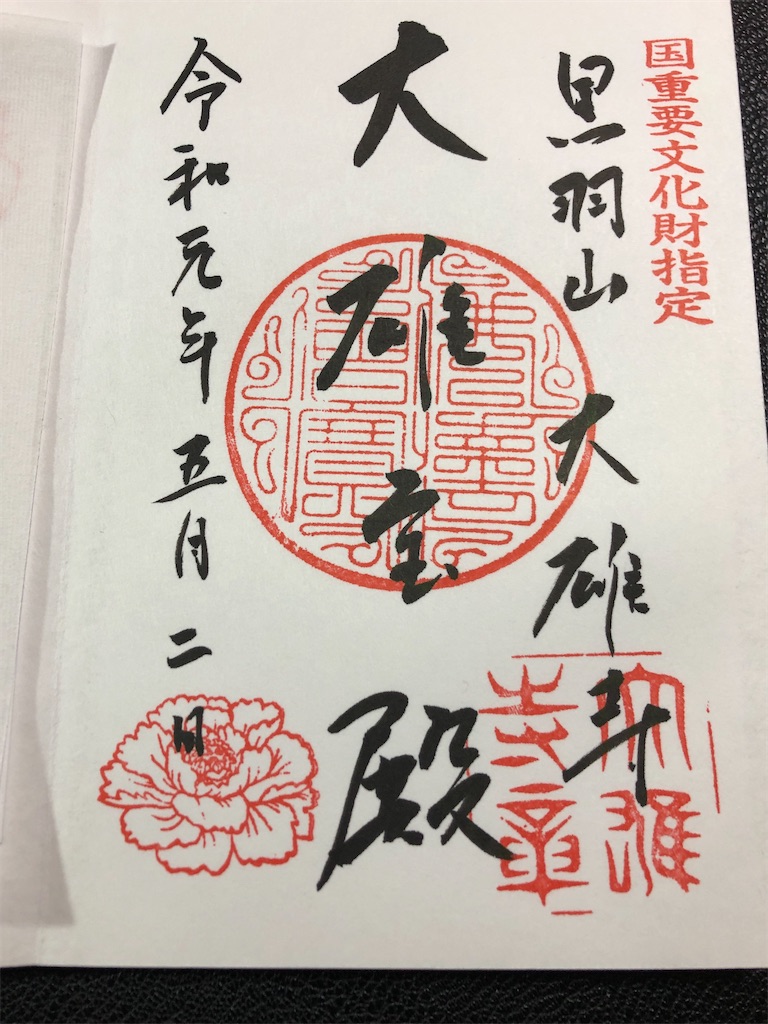 国重要文化財指定
黒羽山 大雄寺
大雄宝殿
令和元年五月二日
大雄寺章